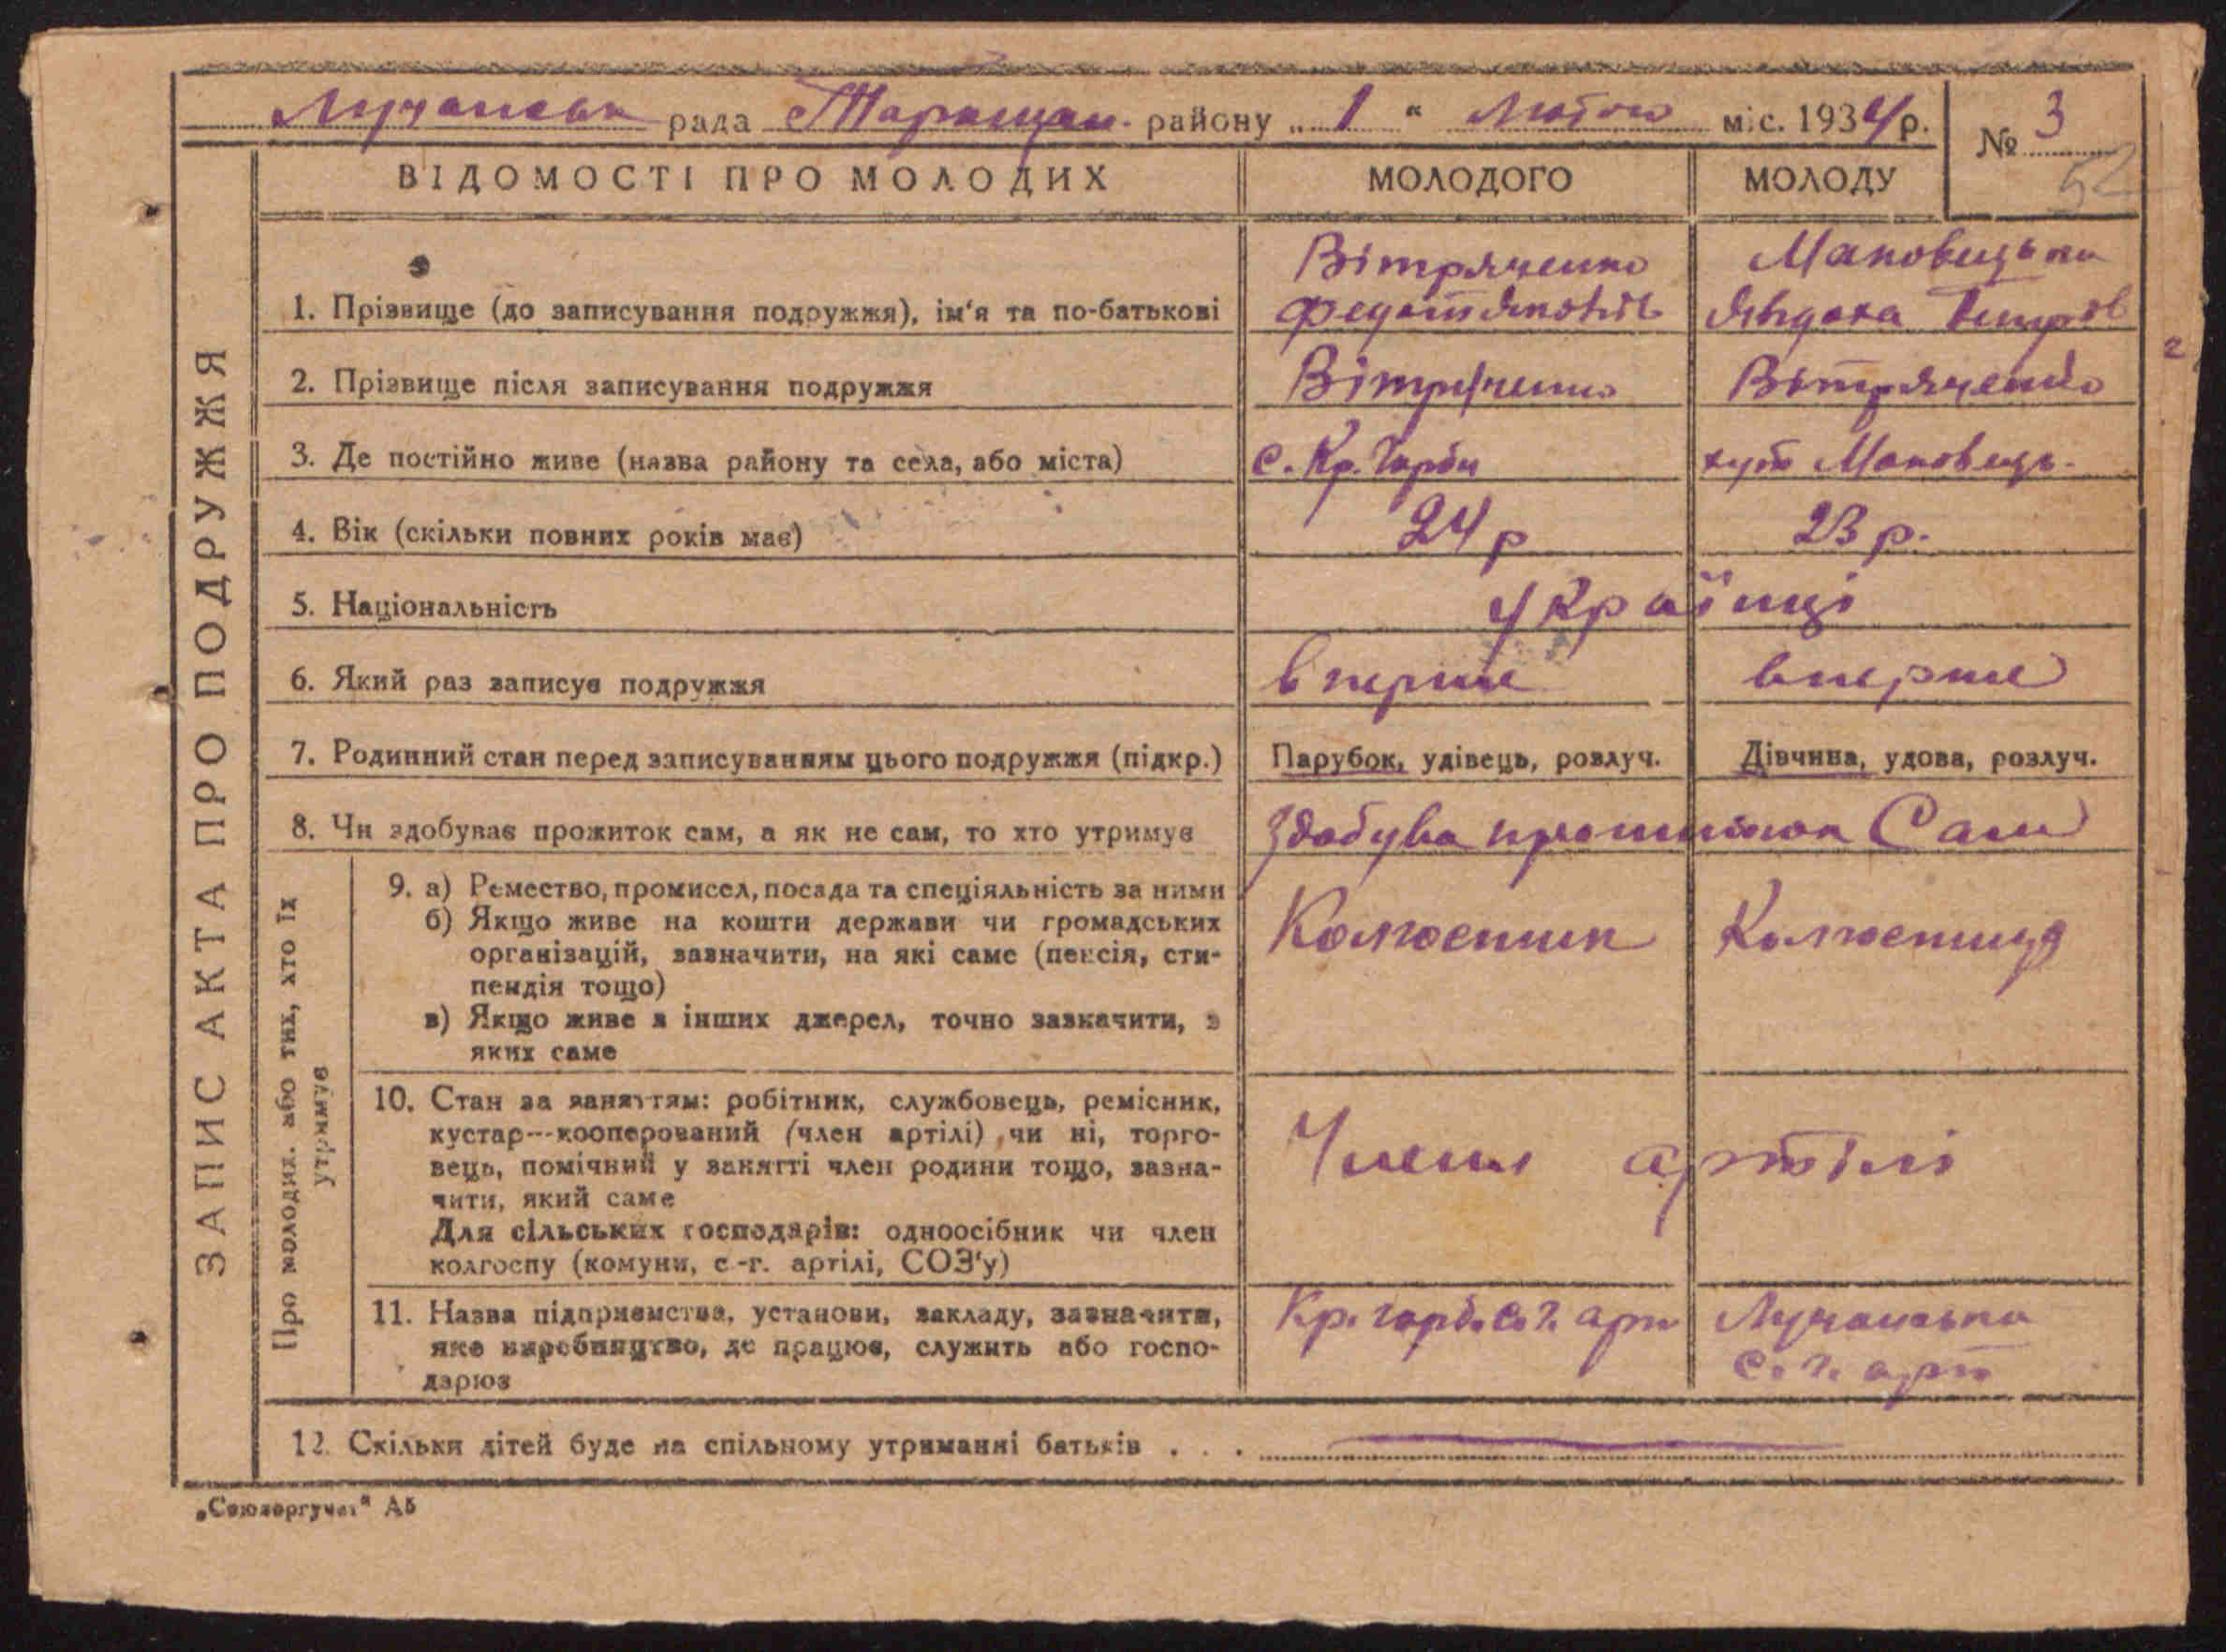 Лучанськ рада Таращан. району „1“ Лютого міс. 1934 р.
№ 3
52
ВІДОМОСТІ ПРО МОЛОДИХ МОЛОДОГО МОЛОДУ
ЗАПИС АКТА ПРО ПОДРУЖЖЯ
Вітряченко Маковицька
1. Прізвище (до записування подружжя), ім'я та по-батькові Федот Якович Явдоха Петров
2. Прізвище після записування подружжя Вітряченко Вітряченко
3. Де постійно живе (назва району та села, або міста) с. Кр. Гарби хут Маковиць.
4. Вік (скільки повних років має) 24 р 23 р.
5. Національність Українці
6. Який раз записує подружжя вперше вперше
7. Родинний стан перед записуванням цього подружжя (підкр.) Парубок, удівець, розлуч. Дівчина, удова, розлуч.
8. Чи здобуває прожиток сам, а як не сам, то хто утримує Здобува прожиток Сам
Про молодих. або тих, хто їх
утримує
9. а) Ремество, промисел, посада та спеціяльність за ними
б) Якщо живе на кошти держави чи громадських Колгоспник Колгоспниця
організацій, зазначити, на які саме (пенсія, сти-
пендія тощо)
в) Якщо живе з інших джерел, точно зазначити, з
яких саме
10. Стан за заняттям: робітник, службовець, ремісник,
кустар---кооперований (член артілі) чи ні, торго-
вець, помічний у занятті член родини тощо, зазна- Члени артілі
чити, який саме
Для сільських господарів: одноосібник чи член
колгоспу (комуни, с-г. артілі, СОЗ'у)
11. Назва підприємства, установи, закладу, зазначити, Кр. гарб. с. г. арт Лучанська
яке виробництво, де працює, служить або госпо- с. г. арт
дарює
12. Скільки дітей буде на спільному утриманні батьків . . .
„Союзоргучет“ АБ